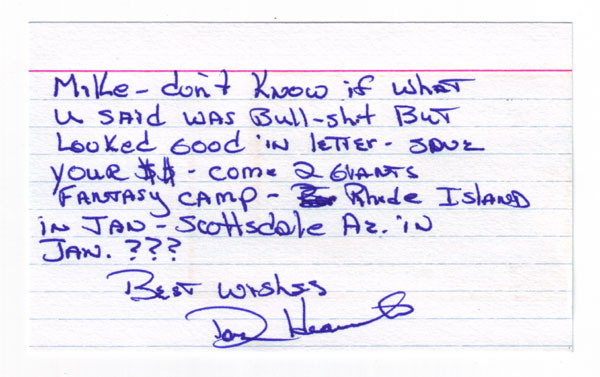 Mike - don't know if what
u said was Bull-shit But
Looked Good in letter - save
your $$ - come 2 Giants
Fantasy camp - Rhode Island
in Jan - Scottsdale Az. in
Jan. ???
Best wishes